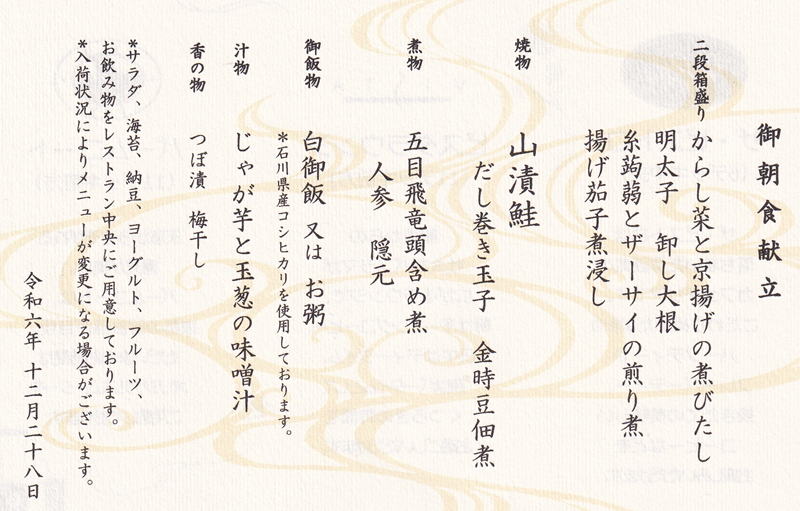 御朝食献立
二段箱盛り からし菜と京揚げの煮びたし
明太子 卸し大根
糸蒟蒻とザーサイの煎り煮
揚げ茄子煮浸し
焼物 山漬鮭
だし巻き玉子 金時豆佃煮
煮物 五目飛竜頭含め煮
人参 隠元
御飯物 白御飯 又は お粥
*石川県産コシヒカリを使用しております。
汁物 じゃが芋と玉葱の味噌汁
香の物 つぼ漬 梅干し
*サラダ、海苔、納豆、ヨーグルト、フルーツ、
お飲み物をレストラン中央にご用意しております。
*入荷状況によりメニューが変更になる場合がございます。
令和六年 十二月二十八日